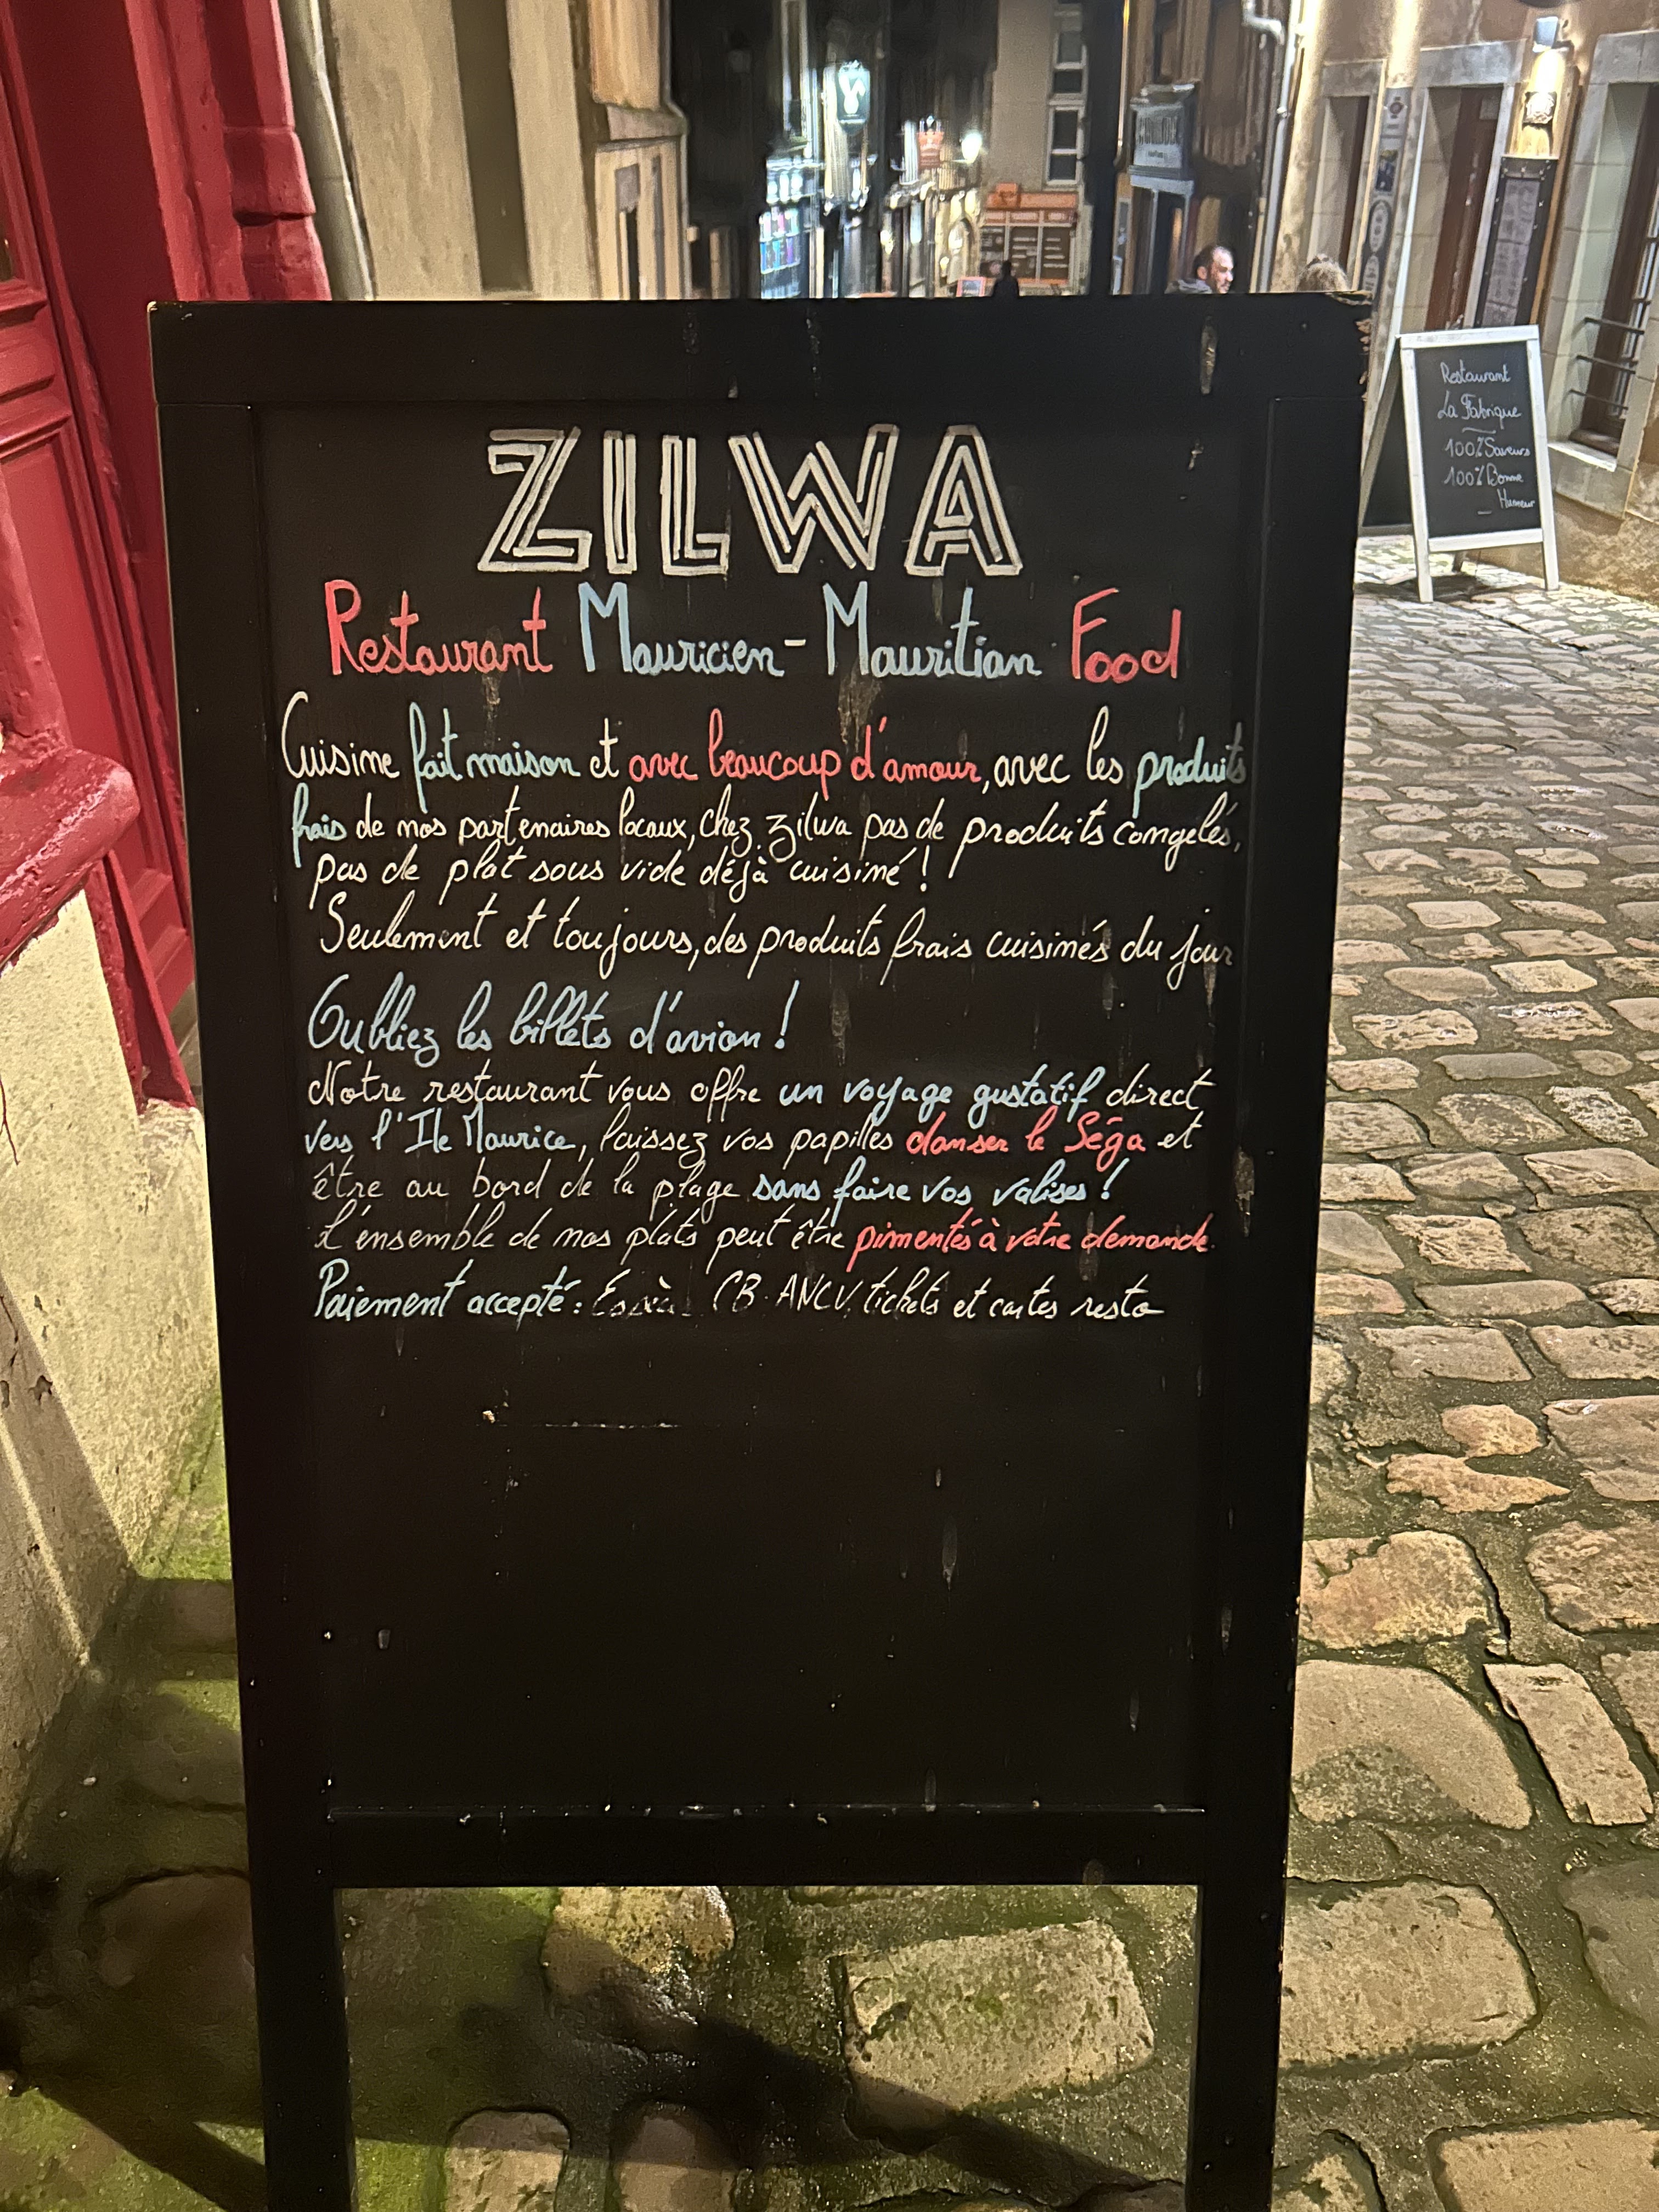 ZILWA
Restaurant Mauricien - Mauritian Food
Cuisine fait maison et avec beaucoup d'amour, avec les produits
frais de nos partenaires locaux, chez zilwa pas de produits congelés,
pas de plat sous vide déjà cuisiné !
Seulement et toujours, des produits frais cuisinés du jour
Oubliez les billets d'avion !
Notre restaurant vous offre un voyage gustatif direct
vers l'Ile Maurice, laissez vos papilles danser le Séga et
être au bord de la plage sans faire vos valises !
L'ensemble de nos plats peut être pimentés à votre demande.
Paiement accepté : CB ANCV, tickets et cartes resto
Restaurant
La Fabrique
100% Saveurs
100% Bonne
Humeur